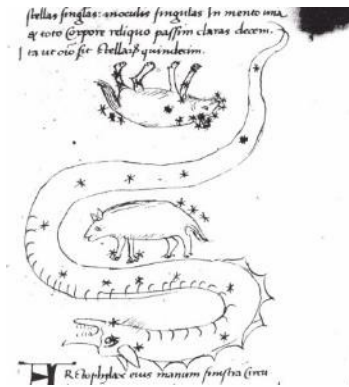 stellas singlas: in oculis singulas In mento una
& toto Corpore reliquo passim claras decem.
Ita ut oīo sit Stellaꝝ quindecim.
REtophylax eius manum sinistrā Circu